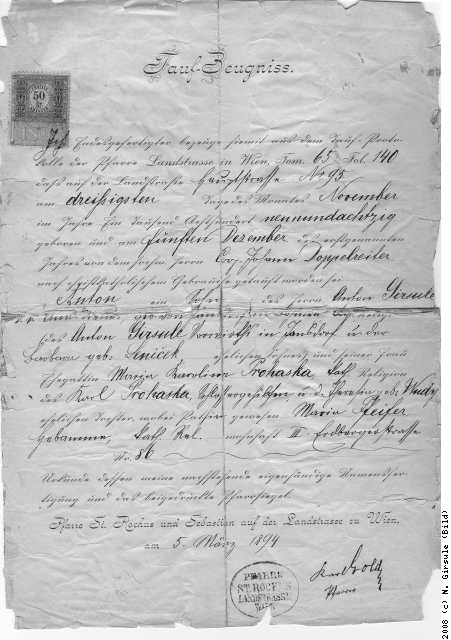 Tauf-Zeugniss.
50
Ich Endesgefertigter bezeuge hiemit aus dem Tauf-Proto-
kolle der Pfarre Landstrasse in Wien, Tom. 65 Fol. 140
dass auf der Landstrasse Hauptstrasse No 95
am dreissigsten Tage des Monates November
im Jahre Ein Tausend Achthundert neunundachtzig
geboren und am fünften Dezember des erstgenannten
Jahres von dem hochw. Herrn Coop. Johann Doppelreiter
nach christkatholischem Gebrauche getauft worden sei
Anton ein Sohn des Herrn Anton Girsule
des Anton Girsule in u. der
Barbara geb. ehelichen Sohnes und seiner Frau
Ehegattin Maria Karolina Prohaska kath. Religion
des Karl Prohaska, u. d. Theresia geb.
ehelichen Tochter wobei Pathin gewesen Maria Pfeifer
Hebamme, kath. Rel. wohnhaft III Erdbergerstrasse
No. 86
Urkunde dessen meine nachstehende eigenhändige Namensfer-
tigung und das beigedruckte Pfarrsiegel.
Pfarre St. Rochus und Sebastian auf der Landstrasse zu Wien,
am 5. März 1894
PFARRE
ST. ROCHUS
LANDSTRASSE
WIEN
Karl
Pfarrer
2008 (c) N. Girsule (Bild)